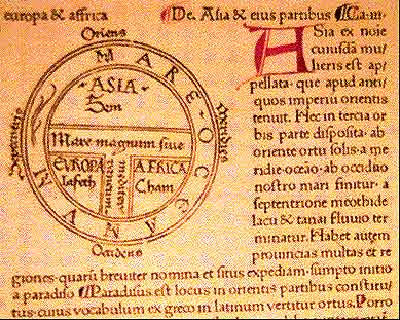 europa & affrica
De. Asia & eius partibus Ca·iii·
Oriens
MARE OCEANVM
·ASIA·
Sem
Mare magnum siue
mediterraneum
EVROPA
Iafeth
AFRICA
Cham
Septentrio
Meridies
Occidens
ASia ex noīe
cuiusdā mu/
lieris est ap/
pellata · que apud anti/
quos imperiū orientis
tenuit. Hec in tercia or/
bis parte disposita · ab
oriente ortu solis · a me
ridie · oceāo · ab occiduo
nostro mari finitur · a
septentrione meothide
lacu & tanai fluuio ter
minatur. Habet autem
prouincias multas et re/
giones · quarū breuiter nomina et situs expediam · sumpto initio
a paradiso ¶Paradisus est locus in orientis partibus constitu/
tus · cuius vocabulum ex greco in latinum vertitur ortus. Porro